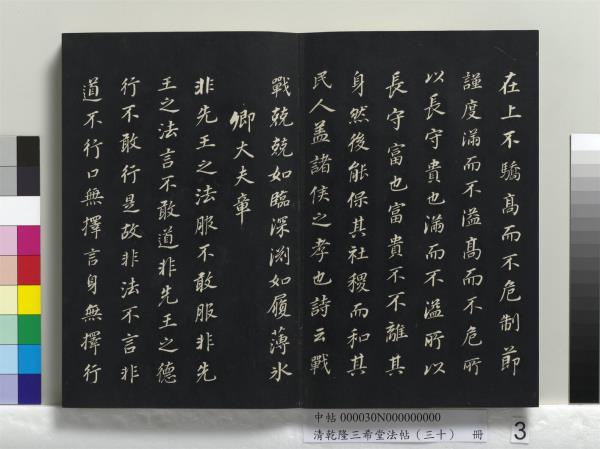 在上不驕髙而不危制節
謹度滿而不溢髙而不危所
以長守貴也滿而不溢所以
長守富也富貴不不離其
身然後能保其社稷而和其
民人蓋諸侯之孝也詩云戰
戰兢兢如臨深淵如履薄冰
卿大夫章
非先王之法服不敢服非先
王之法言不敢道非先王之德
行不敢行是故非法不言非
道不行口無擇言身無擇行
中帖 000030N000000000
清乾隆三希堂法帖（三十） 冊
3